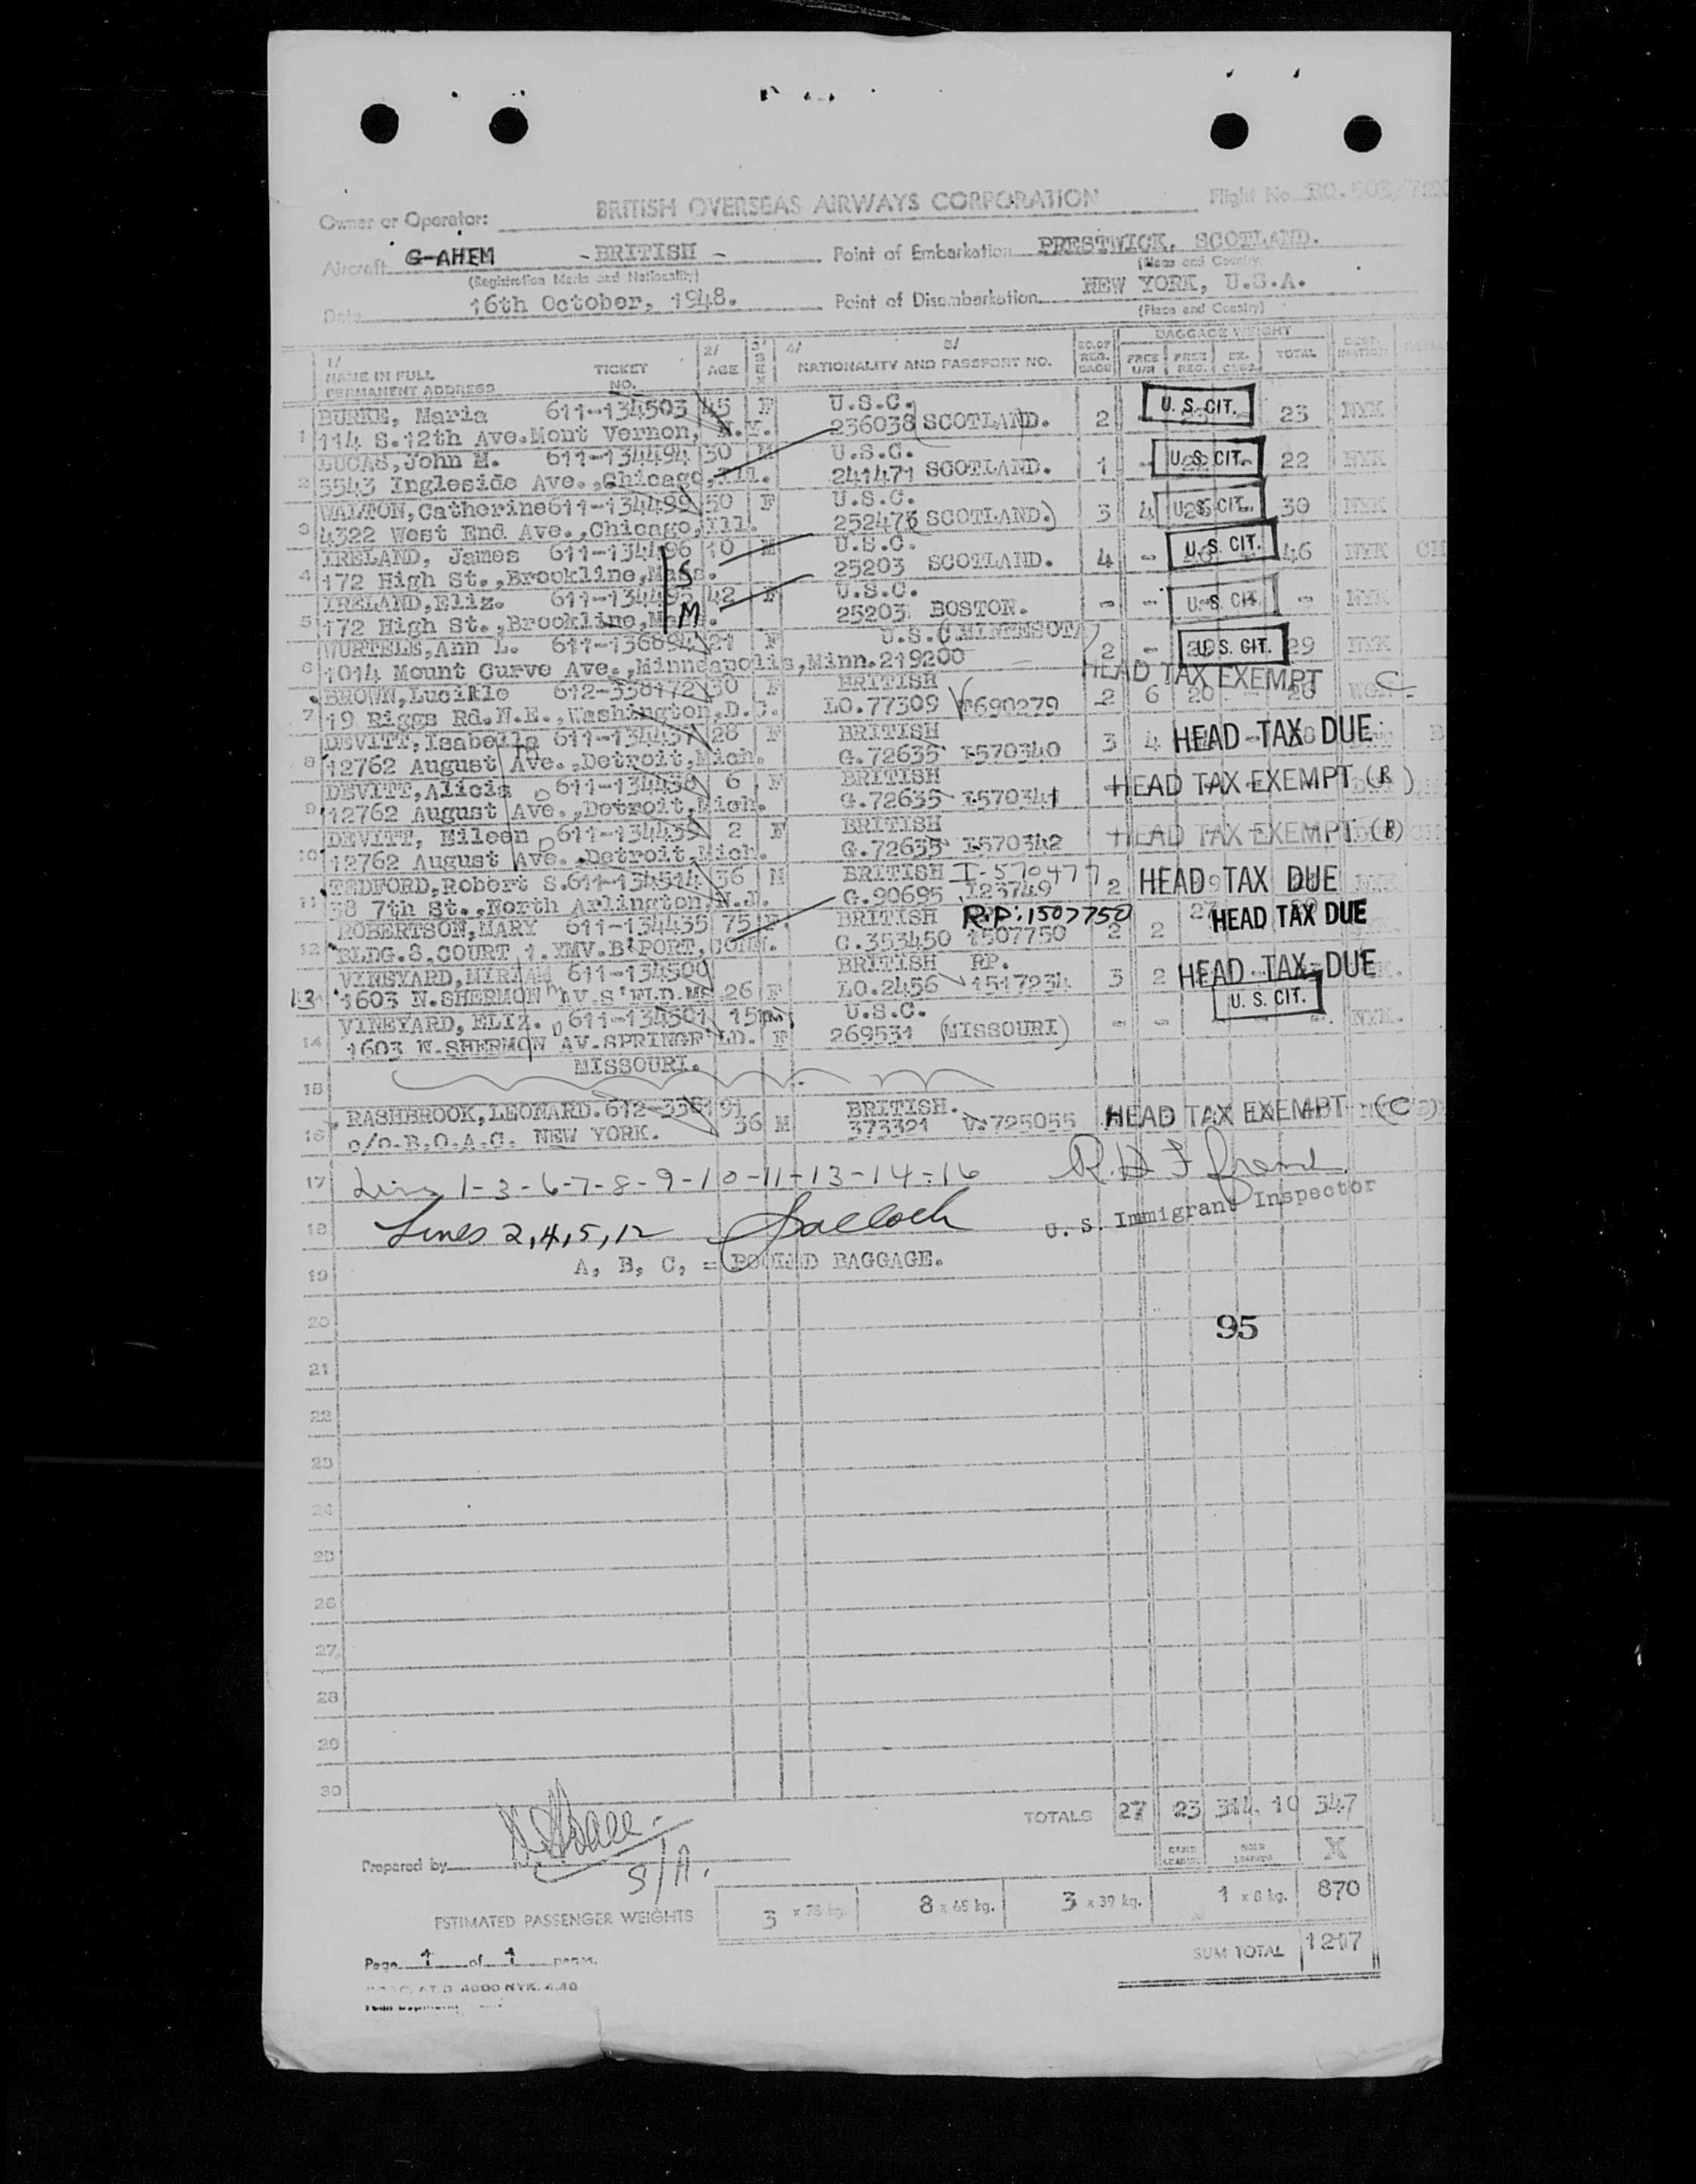 Owner or Operator: BRITISH OVERSEAS AIRWAYS CORPORATION Flight No. BO.503/
Aircraft G-AHEM - BRITISH - Point of Embarkation PRESTWICK, SCOTLAND.
(Registration Marks and Nationality) (Place and Country)
Date 16th October, 1948. Point of Disembarkation NEW YORK, U.S.A.
(Place and Country)
BAGGAGE WEIGHT
1/ NAME IN FULL PERMANENT ADDRESS TICKET NO. 2/ AGE 3/ SEX 4/ NATIONALITY AND PASSPORT NO. 5/ NO. OF REG. BAGS FREE U/R FREE REG. EX-CESS TOTAL DESTINATION
BURKE, Maria 611-134503 45 F U.S.C. U. S. CIT.
1 114 S.12th Ave.Mont Vernon, N.Y. 236038 SCOTLAND. 2 23 NYK
LUCAS, John M. 611-134494 30 M U.S.C.
2 5543 Ingleside Ave.,Chicago,Ill. 241471 SCOTLAND. 1 - U. S. CIT. 22 NYK
WALTON,Catherine 611-134499 50 F U.S.C.
3 4322 West End Ave.,Chicago,Ill. 252473 SCOTLAND.) 3 4 U. S. CIT. 30 NYK
IRELAND, James 611-134496 10 M U.S.C.
4 172 High St.,Brookline,Mass. S 25203 SCOTLAND. 4 - U. S. CIT. 46 NYK
IRELAND,Eliz. 611-134495 42 F U.S.C.
5 172 High St.,Brookline,Mass. M 25203 BOSTON. - - U. S. CIT. - NYK
WURTELE,Ann L. 611-136894 21 F U.S.C. MINNESOTA)
6 1014 Mount Curve Ave.,Minneapolis,Minn. 219200 2 - U. S. CIT. 29 NYK
BROWN,Lucille 612-338172 30 F BRITISH HEAD TAX EXEMPT C
7 19 Riggs Rd.N.E.,Washington,D.C. LO.77309 V690279 2 6 20 - 26
DEVITT,Isabella 611-134437 28 F BRITISH
8 12762 August Ave.,Detroit,Mich. G.72635 I570340 3 4 HEAD TAX DUE
DEVITT,Alicia 611-134436 6 F BRITISH
9 12762 August Ave.,Detroit,Mich. G.72635 I570341 HEAD TAX EXEMPT (B)
DEVITT, Eileen 611-134435 2 F BRITISH
10 12762 August Ave.,Detroit,Mich. G.72635 I570342 HEAD TAX EXEMPT (B)
TEDFORD,Robert S. 611-134514 36 M BRITISH I-570477
11 38 7th St.,North Arlington,N.J. G.90695 123749 2 HEAD TAX DUE NYK
ROBERTSON,MARY 611-134435 75 F. BRITISH R.P: 1507750
12 BLDG.8,COURT 1.YMV.B'PORT,CONN. C.353450 1507750 2 2 HEAD TAX DUE
VINEYARD,MIRIAM 611-134500 BRITISH RP.
13 1603 N.SHERMON AV.S'FLD.MS 26 F LO.2456 1517234 3 2 HEAD TAX DUE
VINEYARD, ELIZ. 611-134501 15m. U.S.C. U. S. CIT.
14 1603 N.SHERMON AV.SPRINGF'LD. F 269531 (MISSOURI) - - NYK.
MISSOURI.
15
RASHBROOK,LEONARD. 612-338191 BRITISH.
16 c/o.B.O.A.C. NEW YORK. 36 M 373321 V.725055 HEAD TAX EXEMPT (C)
17 Lines 1-3-6-7-8-9-10-11-13-14-16
18 Lines 2,4,5,12 U. S. Immigrant Inspector
19 A, B, C, = POOLED BAGGAGE.
20 95
21
22
23
24
25
26
27
28
29
30
TOTALS 27 23 314 10 347
X
Prepared by S/A.
ESTIMATED PASSENGER WEIGHTS 3 x 75 kg. 8 x 65 kg. 3 x 39 kg. 1 x 8 kg. 870
SUM TOTAL 1217
Page 1 of 1 pages.